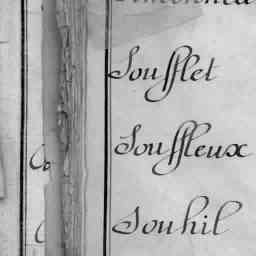 Soufflet
Souffleux
Souhil